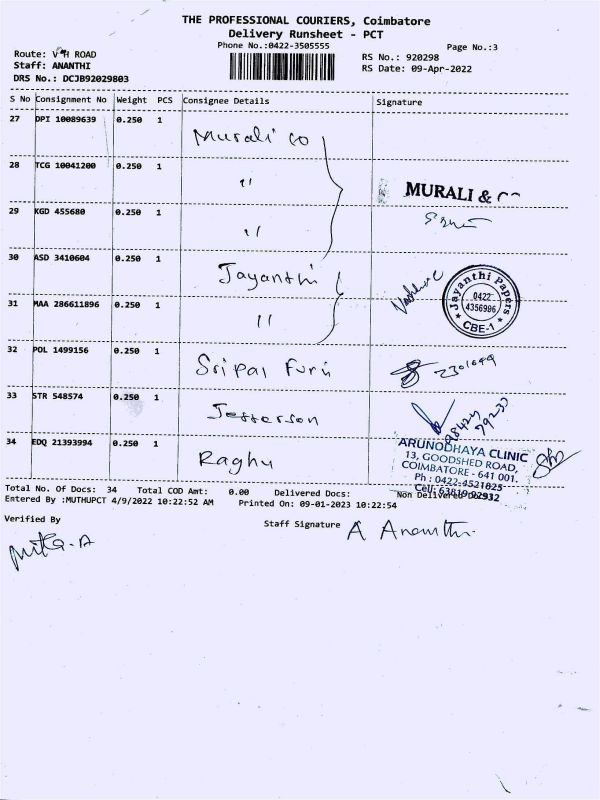 THE PROFESSIONAL COURIERS, Coimbatore
Delivery Runsheet - PCT
Phone No.:0422-3505555
Page No.:3
Route: V H ROAD
Staff: ANANTHI
DRS No.: DCJB92029803
RS No.: 920298
RS Date: 09-Apr-2022
S No Consignment No Weight PCS Consignee Details Signature
27 DPI 10089639 0.250 1 Murali co
28 TCG 10041200 0.250 1 〃 MURALI & CO
29 KGD 455680 0.250 1 〃
30 ASD 3410604 0.250 1 Jayanthi
Jayanthi Papers
0422
4356986
CBE-1
31 MAA 286611896 0.250 1 〃
32 POL 1499156 0.250 1 Sripal Furn 2301699
33 STR 548574 0.250 1 Jefferson
98424
79233
34 EDQ 21393994 0.250 1 Raghu
ARUNODHAYA CLINIC
13, GOODSHED ROAD,
COIMBATORE - 641 001.
Ph : 0422-4521825
Cell: 63819 92932
Total No. Of Docs: 34 Total COD Amt: 0.00 Delivered Docs: Non Delivered Docs:
Entered By :MUTHUPCT 4/9/2022 10:22:52 AM Printed On: 09-01-2023 10:22:54
Verified By
Staff Signature A Ananthi